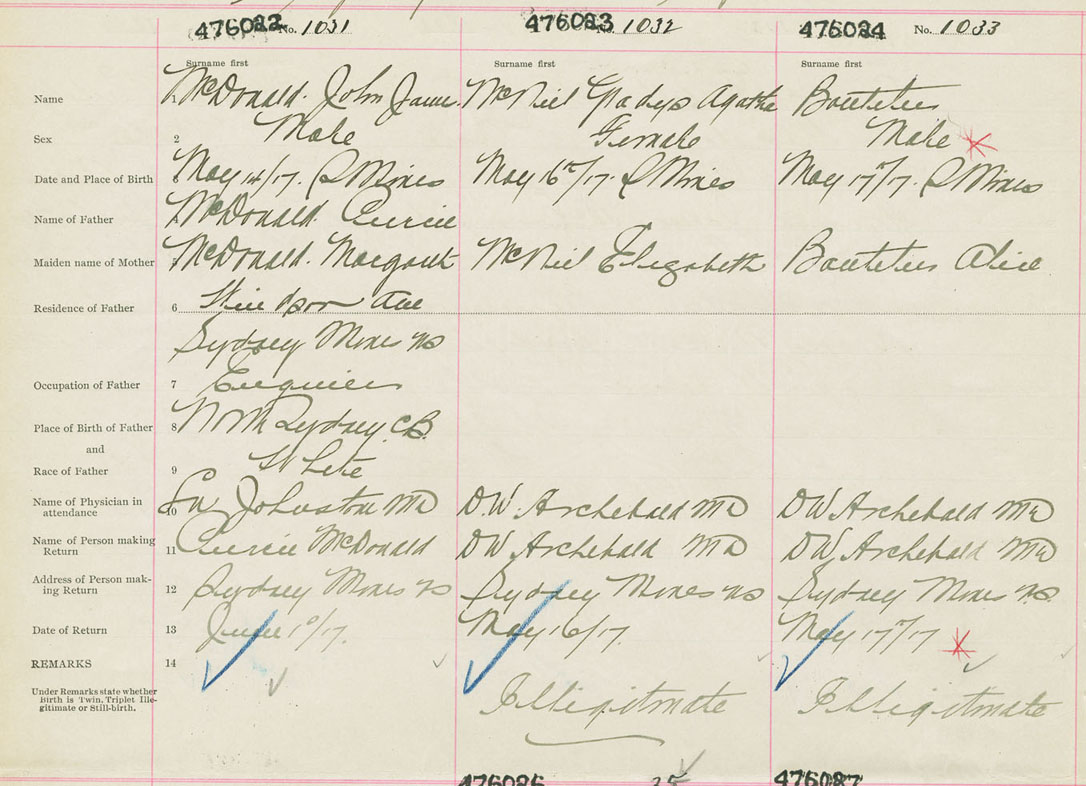 476022 No. 1031 476023 No. 1032 476024 No. 1033
Surname first Surname first Surname first
Name 1 McDonald. John McNeil Gladys Agatha
Sex 2 Male Female Male
Date and Place of Birth May 14/17. S Mines May 16th/17. S Mines May 17th/17. S Mines
Name of Father 4 McDonald.
Maiden name of Mother McDonald. Margaret McNeil Elizabeth Alice
Residence of Father 6 Windsor Ave
Sydney Mines NS
Occupation of Father 7
Place of Birth of Father 8 North Sydney C.B.
and
Race of Father 9 White
Name of Physician in
attendance 10 Johnston MD DW. Archibald MD DW Archibald MD
Name of Person making
Return 11 McDonald DW Archibald MD DW. Archibald MD
Address of Person mak-
ing Return 12 Sydney Mines NS Sydney Mines NS Sydney Mines N.S.
Date of Return 13 June 1st/17. May 16/17. May 17th/17
REMARKS 14
Under Remarks state whether
Birth is Twin, Triplet Ille-
gitimate or Still-birth.
Illigitmate Illigitmate